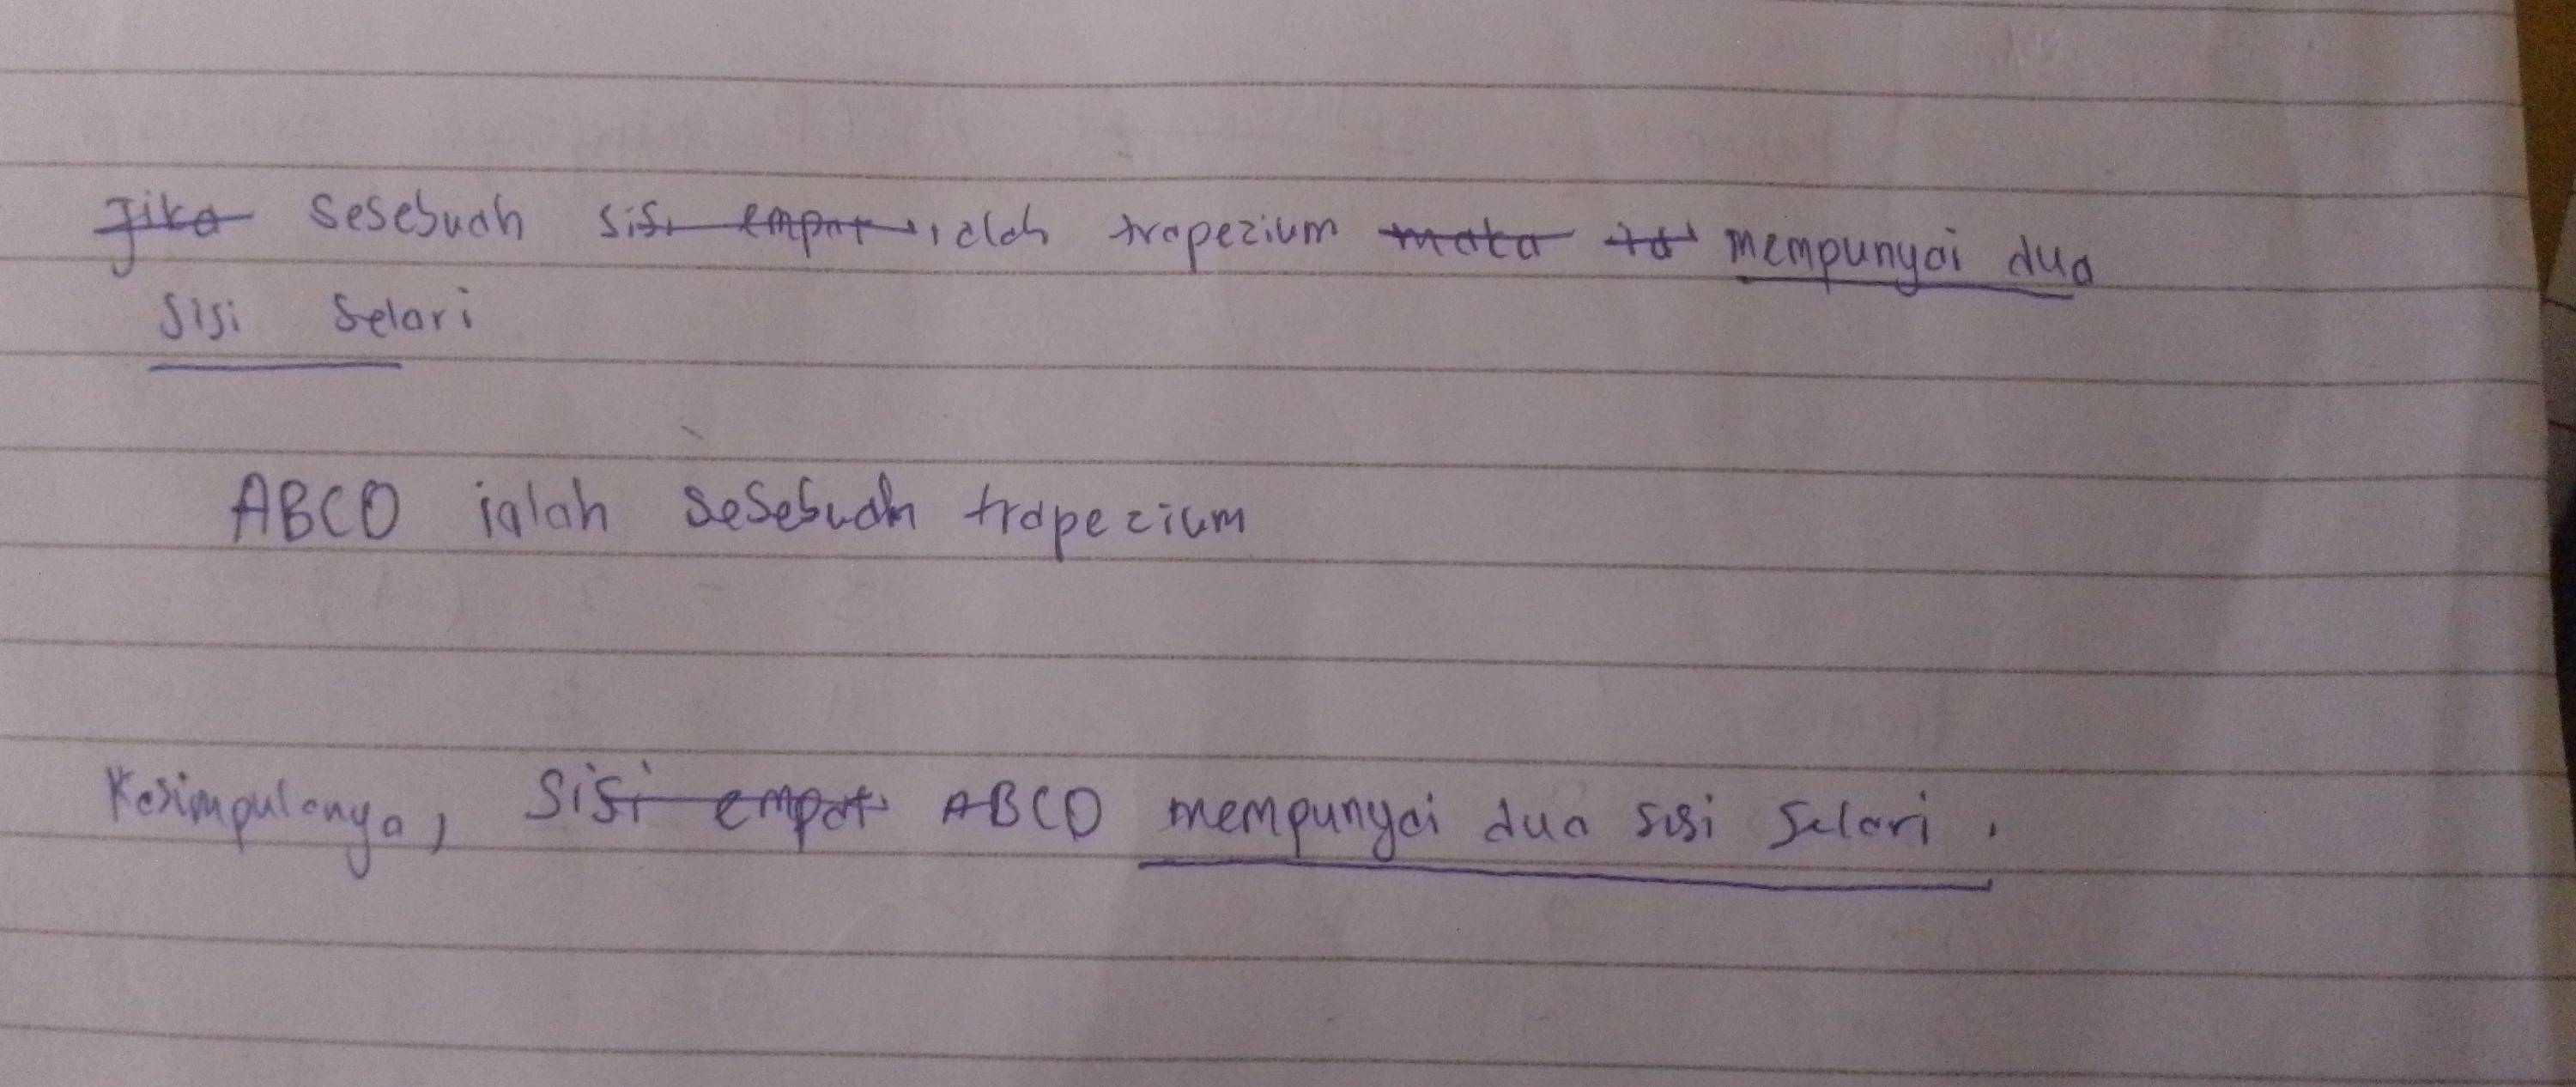 Jika sesebuah sisi empat ialah trapezium maka ia mempunyai dua
sisi selari
ABCD ialah sesebuah trapezium
Kesimpulanya, sisi empat ABCD mempunyai dua sisi selari.